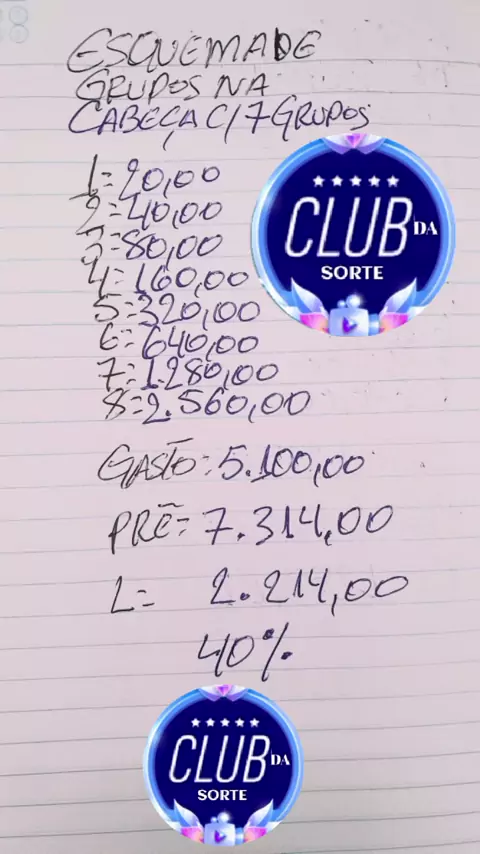 ESQUEMA DE
GRUPOS NA
CABEÇA C/7 GRUPOS
1=20,00
2=40,00
3=80,00
4=160,00
5=320,00
6=640,00
7=1.280,00
8=2.560,00
CLUB DA
SORTE
GASTO: 5.100,00
PRÊ= 7.314,00
L= 2.214,00
40%
CLUB DA
SORTE